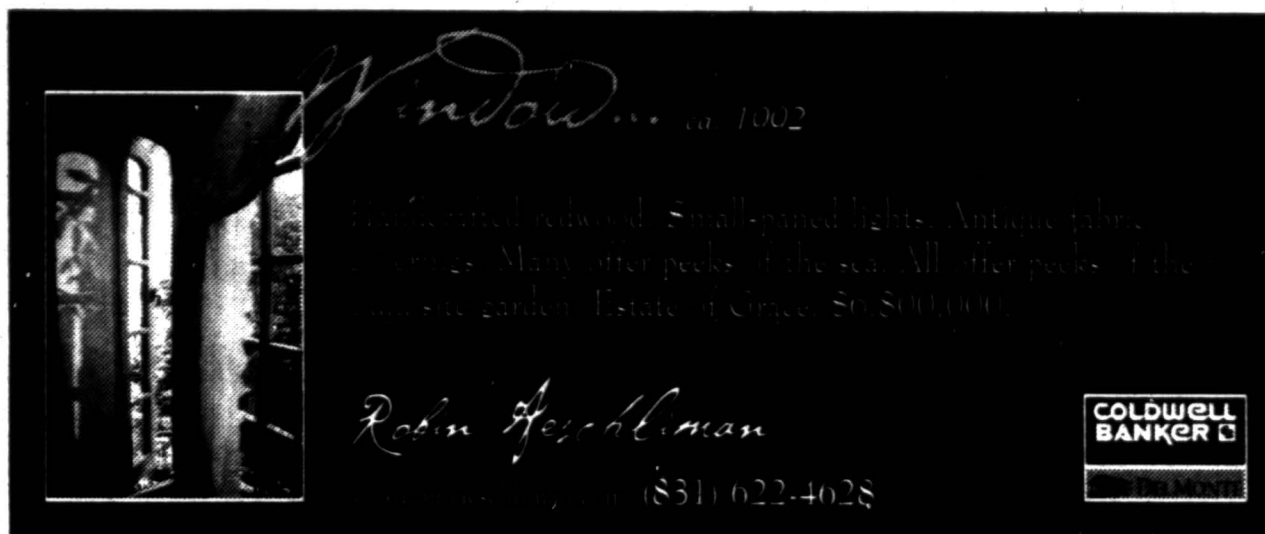 Window... ca. 1002
Handcrafted redwood. Small-paned lights. Antique fabric
Many offer peeks of the sea. All offer peeks of the
garden. Estate of Grace. $6,800,000.
Robin Aeschliman
(831) 622-4628
COLDWELL
BANKER
DEL MONTE